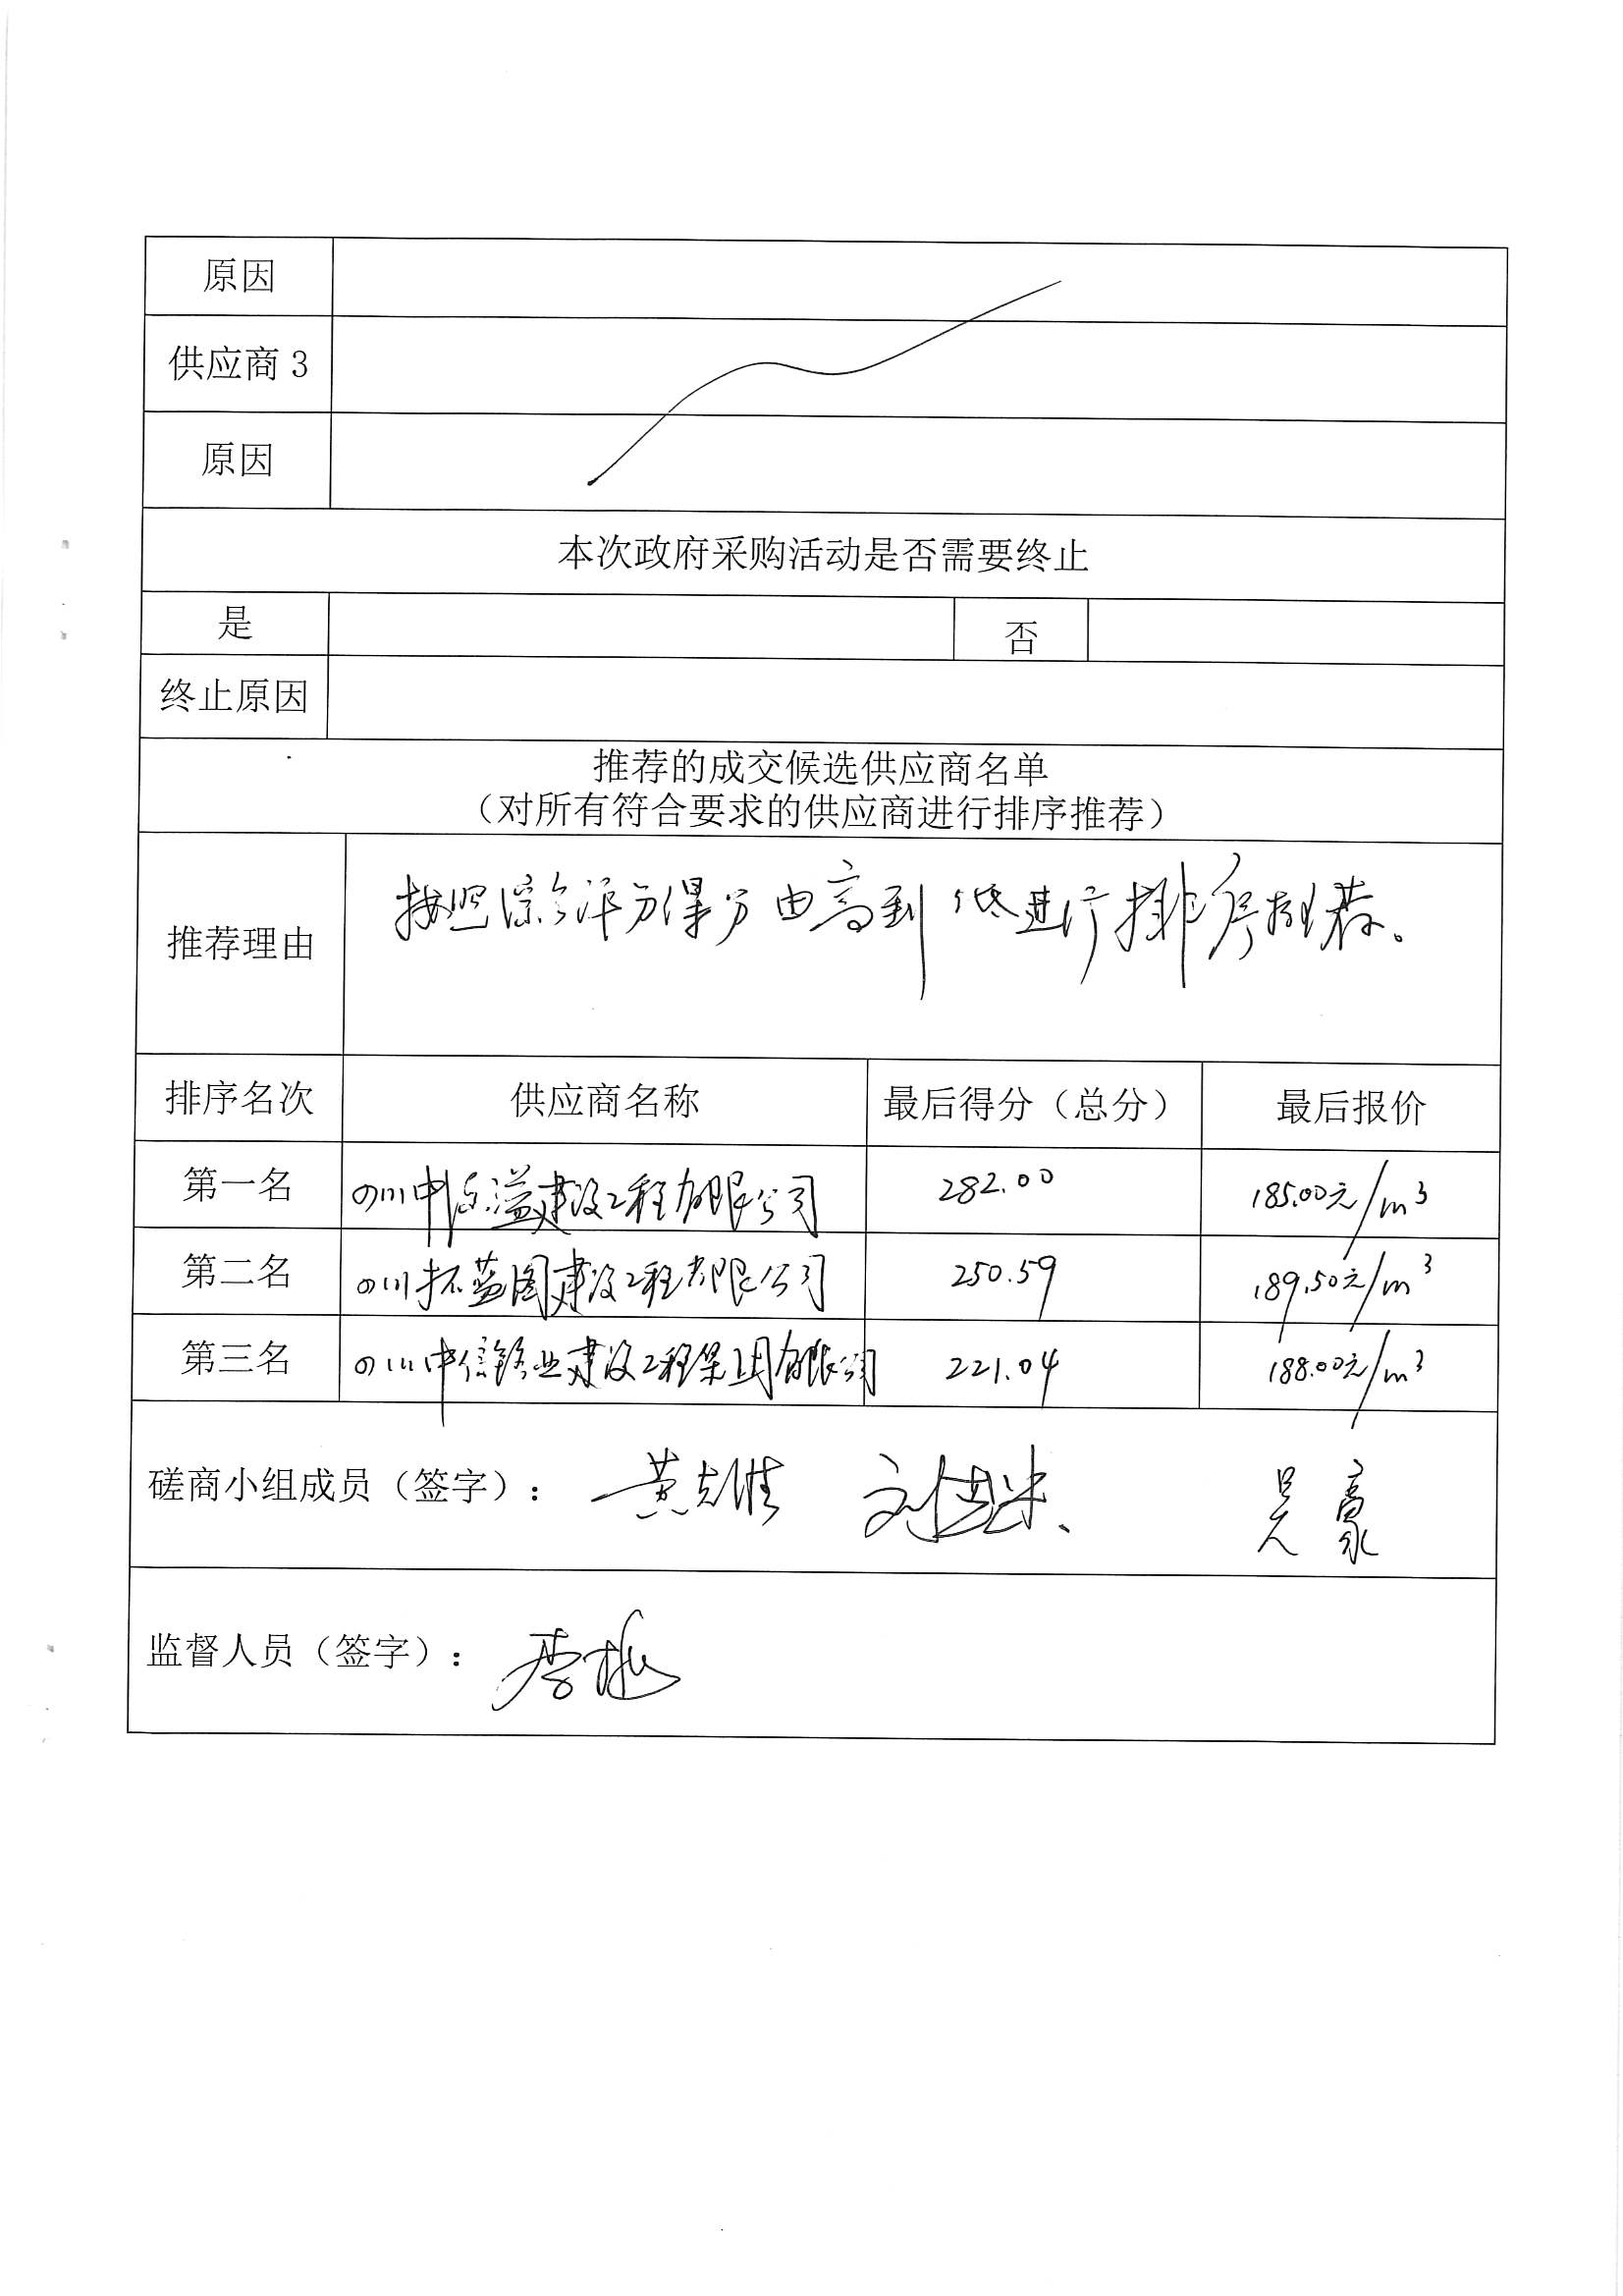 原因
供应商 3
原因
本次政府采购活动是否需要终止
是 否
终止原因
推荐的成交候选供应商名单
（对所有符合要求的供应商进行排序推荐）
推荐理由 按照综合评分得分由高到低进行排序推荐。
排序名次 供应商名称 最后得分（总分） 最后报价
第一名 四川中 溢建设工程有限公司 282.00 185.00元/m³
第二名 四川拓蓝图建设工程有限公司 250.59 189.50元/m³
第三名 四川中信 业建设工程集团有限公司 221.04 188.00元/m³
磋商小组成员（签字）： 黄 刘 吴豪
监督人员（签字）： 李